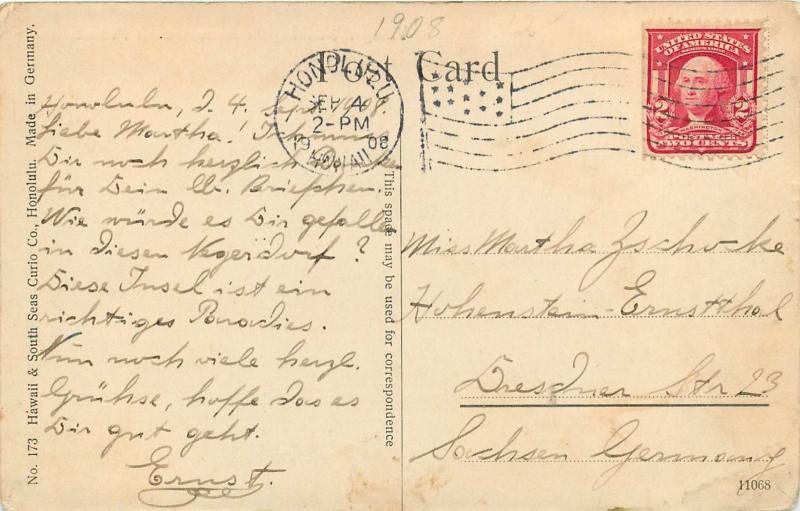 1908
Post Card
HONOLULU
SEP 4
2-PM
1908
HAWAII
UNITED STATES
OF AMERICA
SERIES 1902
2 2
WASHINGTON
POSTAGE
TWO CENTS
Honolulu, d. 4. Sept. 1908.
Liebe Martha! Ich muss
Dir noch herzlich danken
für Dein lb. Briefchen.
Wie würde es Dir gefallen
in diesen Negerdorf?
Diese Insel ist ein
richtiges Paradies.
Nun noch viele herzl.
Grühse, hoffe das es
Dir gut geht.
Ernst.
This space may be used for correspondence
Miss Martha Zschocke
Hohenstein-Ernstthal
Dresdner Str 23
Sachsen Germany
No. 173 Hawaii & South Seas Curio Co., Honolulu. Made in Germany.
11068